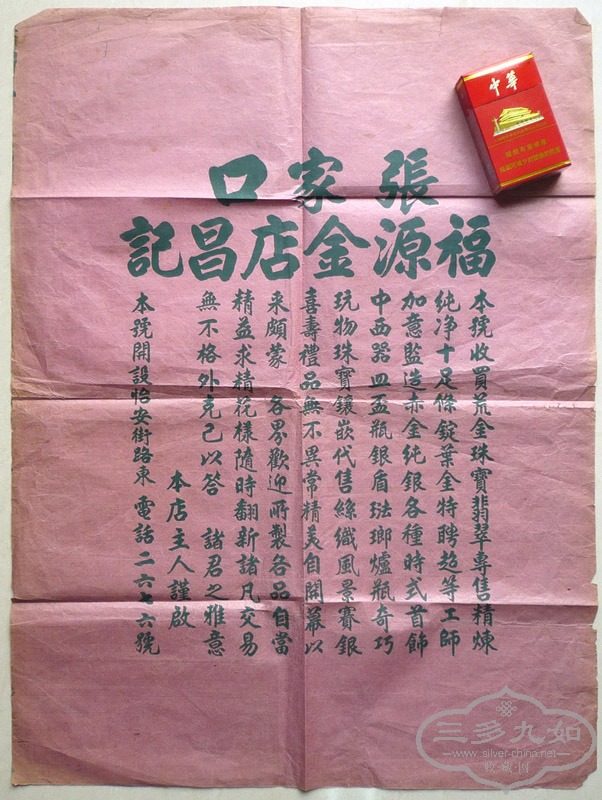 張家口
福源金店昌記
本號收買荒金珠寶翡翠專售精煉
純净十足條錠葉金特聘超等工師
加意監造赤金純銀各種時式首飾
中西器皿盃瓶銀盾琺瑯爐瓶奇巧
玩物珠寶鑲嵌代售絲織風景賽銀
喜壽禮品無不異常精美自開幕以
来頗蒙 各界歡迎所製各品自當
精益求精花樣隨時翻新諸凡交易
無不格外克己以答 諸君之雅意
本店主人謹啟
本號開設怡安街路東 電話二六七六號
中華
三多九如
www.silver-china.net
收藏网